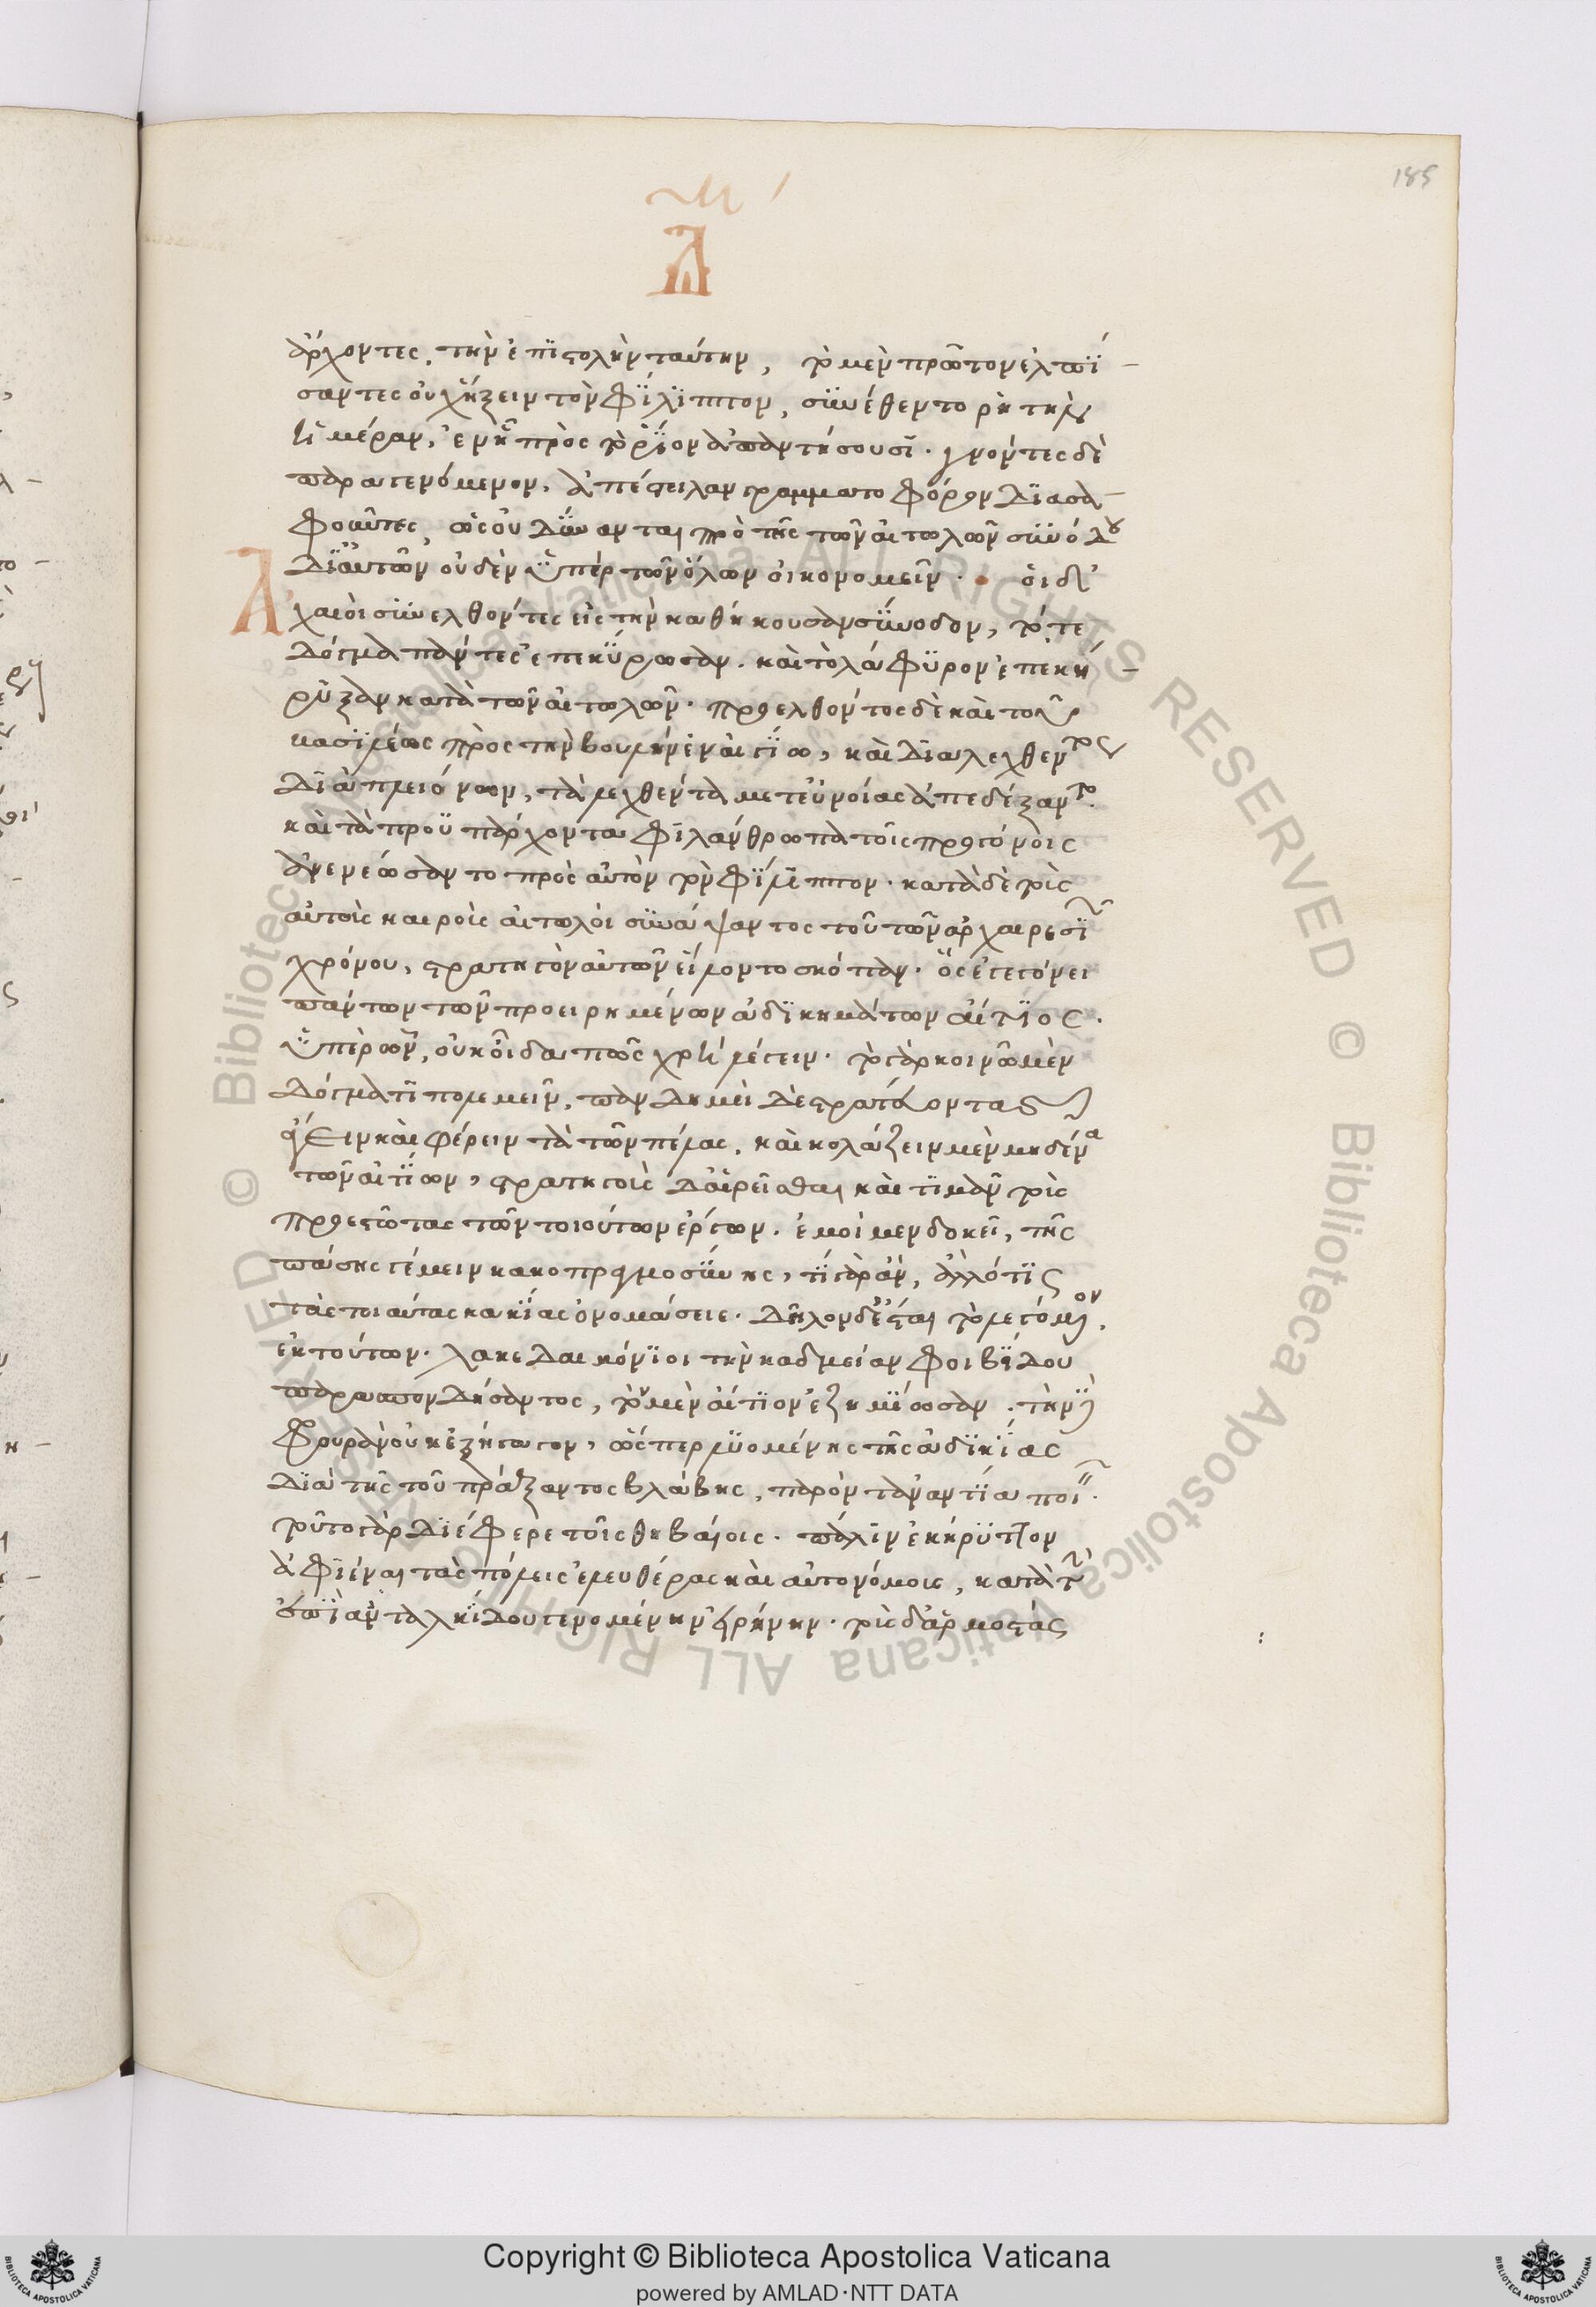 185
ἄρχοντες τὴν ἐπιστολὴν ταύτην, τὸ μὲν πρῶτον ἐλπί-
σαντες οὐχ ἥξειν τὸν Φίλιππον, συνέθεντο ῥητὴν
ἡμέραν, ἐν ᾗ πρὸς τὸ ῥίον ἀπαντήσουσι. γνόντες δὲ
παραγενόμενον, ἀπέστειλαν γραμματοφόρον διασα-
φοῦντες, ὡς οὐ δύνανται πρὸ τῆς τῶν αἰτωλῶν συνόδου
δι αὑτῶν οὐδὲν ὑπὲρ τῶν ὅλων οἰκονομεῖν. οἱ δ'
Ἀχαιοὶ συνελθόντες εἰς τὴν καθήκουσαν σύνοδον, τό τε
δόγμα πάντες ἐπεκύρωσαν. καὶ τὸ λάφυρον ἐπεκή-
ρυξαν κατὰ τῶν αἰτωλῶν. προσελθόντος δὲ καὶ τοῦ
βασιλέως πρὸς τὴν βουλὴν ἐν αἰγίω, καὶ διαλεχθέντος
διὰ πλειόνων, τὰ λεχθέντα μετ εὐνοίας ἀπεδέξαντο.
καὶ τὰ προϋπάρχοντα φιλάνθρωπα τοῖς προγόνοις
ἀνενεώσαντο πρὸς αὐτὸν τὸν Φίλιππον. κατὰ δὲ τοὺς
αὐτοὺς καιροὺς αἰτωλοὶ συνάψαντος τοῦ τῶν ἀρχαιρεσίων
χρόνου, στρατηγὸν αὑτῶν εἵλοντο σκόπαν. ὃς ἐγεγόνει
πάντων τῶν προειρημένων ἀδικημάτων αἴτιος.
ὑπὲρ ὧν, οὐκ οἶδα πῶς χρὴ λέγειν. τὸ γὰρ κοινῶ μὲν
δόγματι πολεμεῖν, πανδημεὶ δὲ στρατεύοντας
ἄγειν καὶ φέρειν τὰ τῶν πέλας, καὶ κολάζειν μὲν μηδένα
τῶν αἰτίων, στρατηγοὺς δ αἱρεῖσθαι καὶ τιμᾶν τοὺς
προεστῶτας τῶν τοιούτων ἔργων. ἐμοὶ μεν δοκεῖ, τῆς
πάσης γέμειν κακοπραγμοσύνης, τί γὰρ ἂν, ἄλλό τις
τὰς τοιαύτας κακίας ὀνομάσειε. δῆλον δ ἔσται τὸ λεγόμενον
ἐκ τούτων. λακεδαιμόνιοι τὴν καδμείαν Φοιβίδου
παρασπονδήσαντος, τὸν μὲν αἴτιον ἐζημίωσαν. τὴν δὲ
Φρουρὰν οὐκ ἐξήγαγον, ὥσπερ λυομένης τῆς ἀδικίας
διὰ τῆς τοῦ πράξαντος βλάβης, παρὸν τἀναντία ποιεῖν.
τοῦτο γὰρ διέφερε τοῖς θηβαίοις. πάλιν ἐκήρυττον
ἀφιέναι τὰς πόλεις ἐλευθέρας καὶ αὐτονόμους, κατὰ τὴν
ἐπὶ ἀνταλκίδου γενομένην εἰρήνην. τοὺς δ ἁρμοστὰς
Copyright © Biblioteca Apostolica Vaticana
powered by AMLAD·NTT DATA